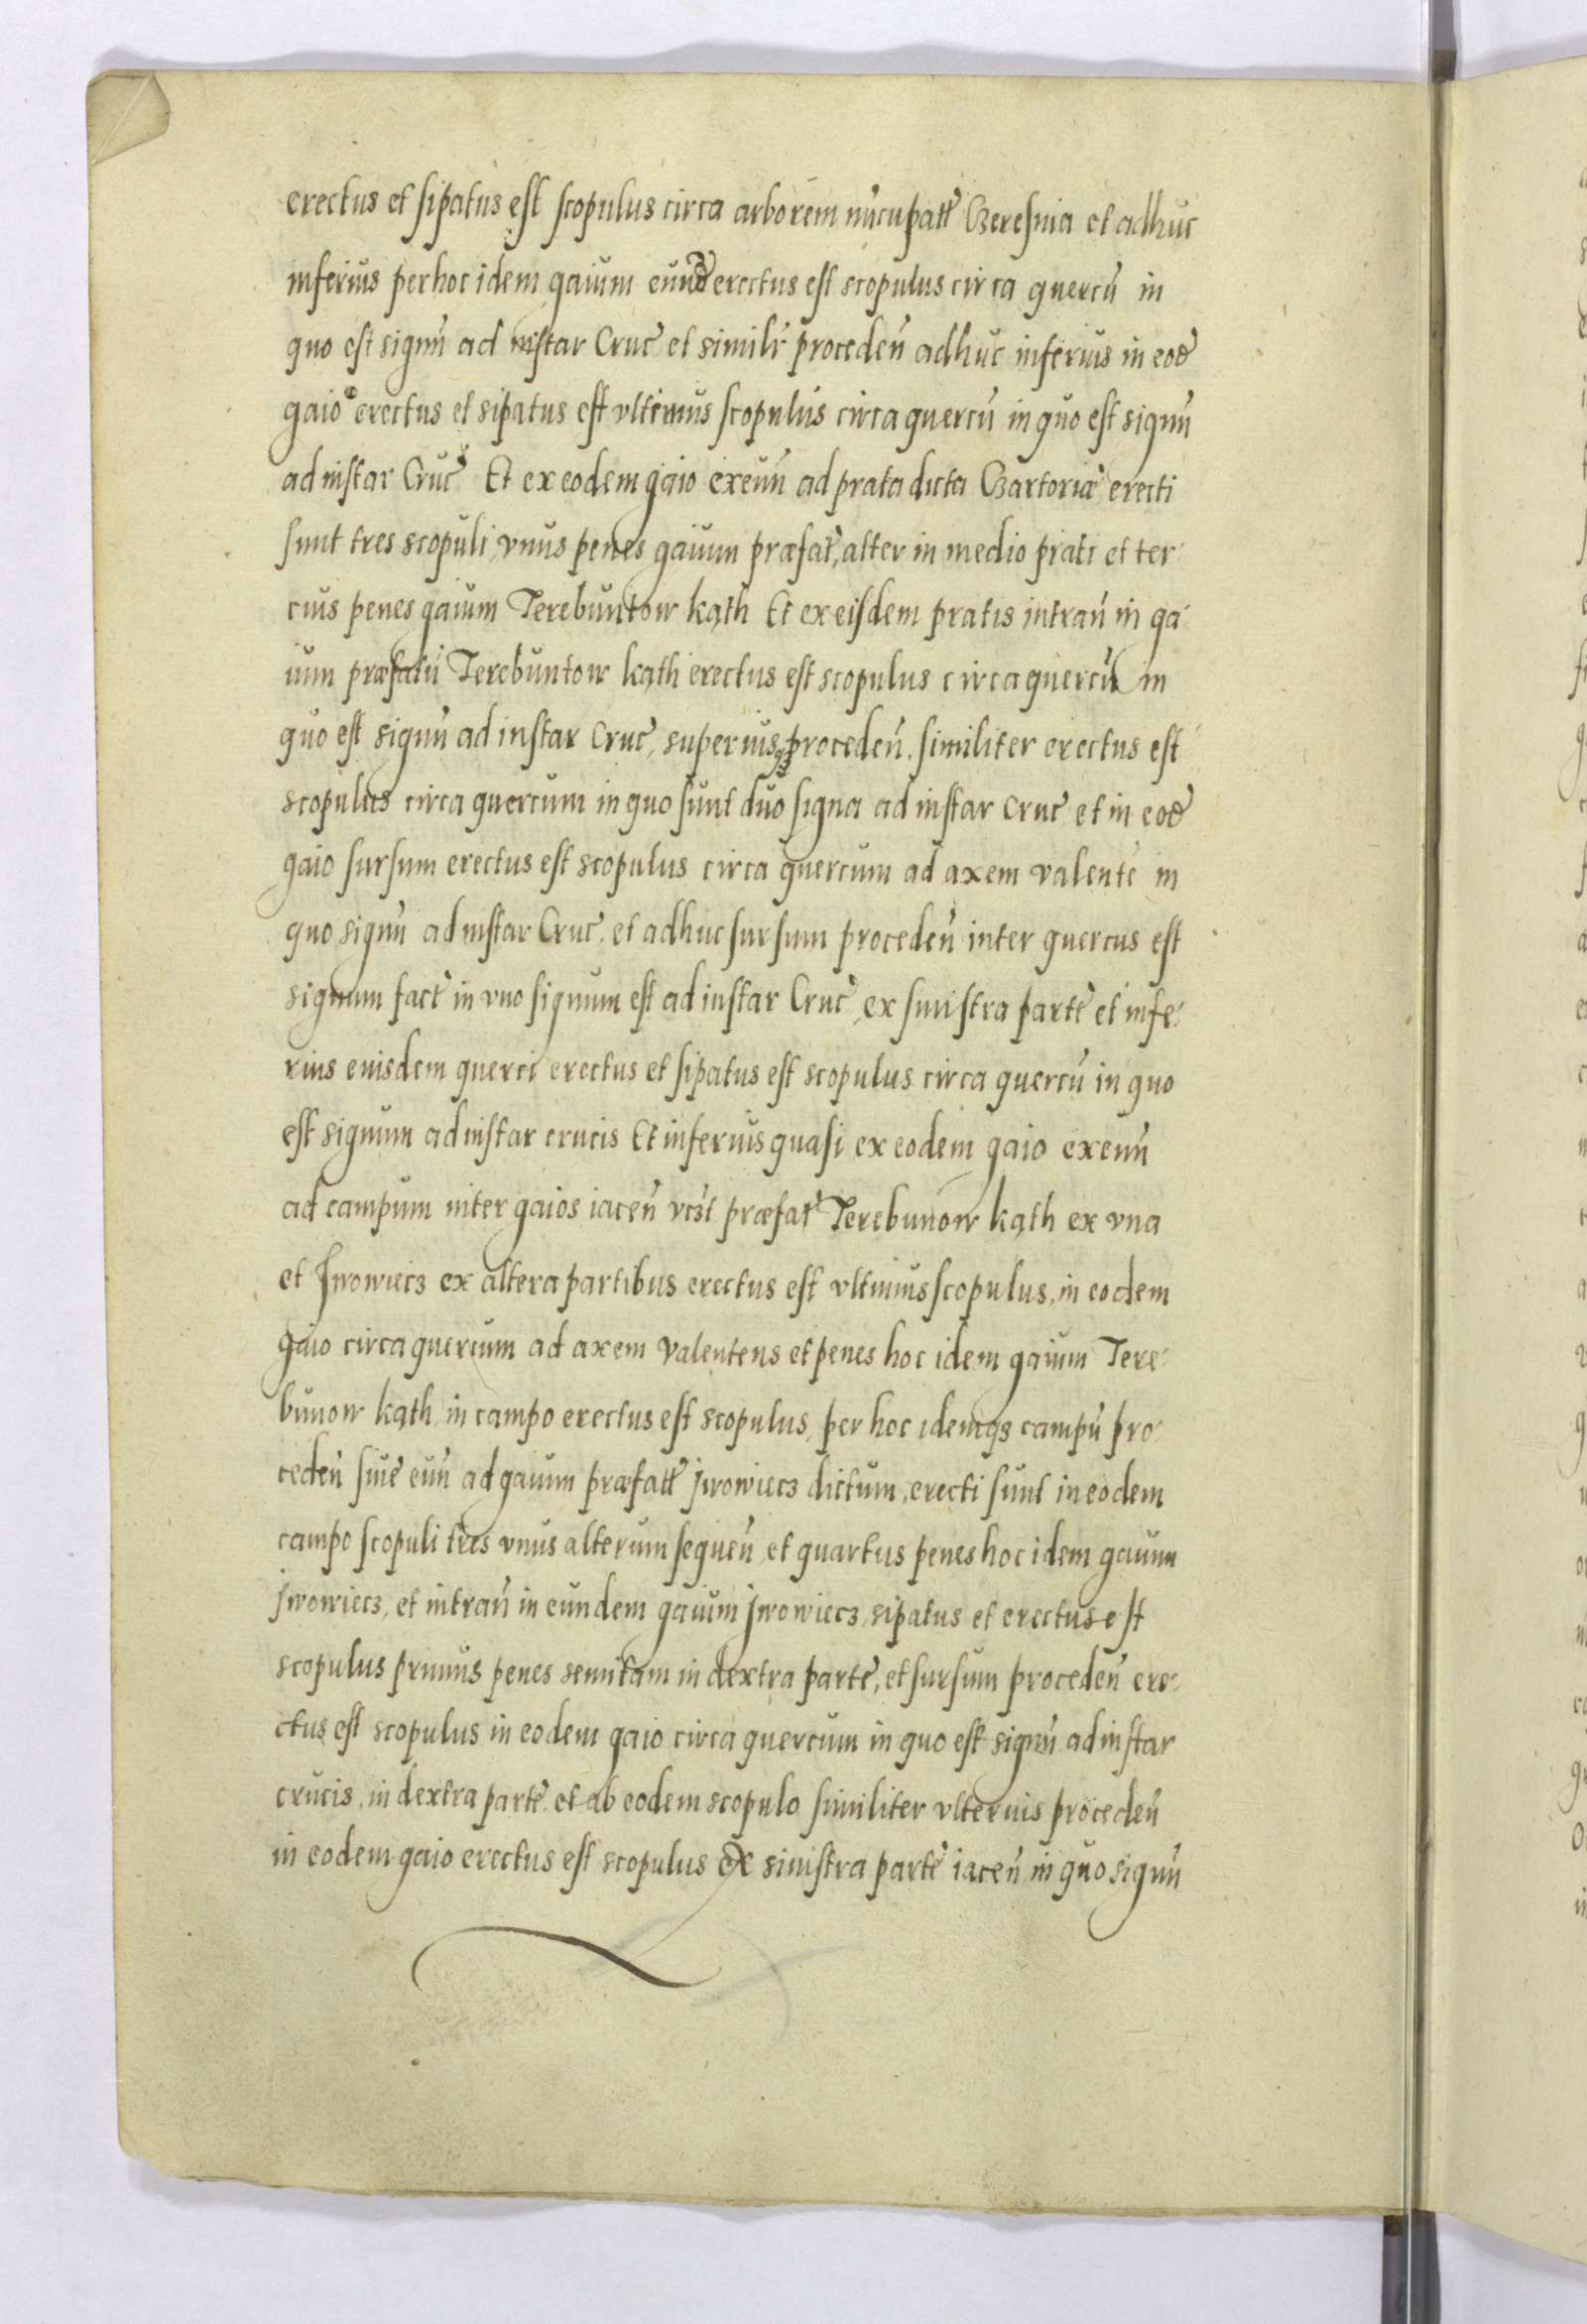 erectus et sipatus est scopulus circa arborem nūcupatt Czeresnia et adhuc
inferius per hoc idem gaium eund erectus est scopulus circa quercū in
quo est signū ad instar Cruc et similr proceden̄ adhuc inferius in eod
gaio erectus et sipatus est vltimus scopulus circa quercū in quo est signū
ad instar Cruc Et ex eodem gaio exeun̄ ad prata dicta Bartoriæ erecti
sunt tres scopuli, vnus penes gaium præfat, alter in medio prati et ter-
cius penes gaium Terebuntow kąth Et ex eisdem pratis intran̄ in ga-
ium præfatū Terebuntow kąth erectus est scopulus circa quercū in
quo est signū ad instar Cruc, superiusqз proceden̄. similiter erectus est
scopulus circa quercum in quo sunt duo signa ad instar Cruc et in eod
gaio sursum erectus est scopulus circa quercum ad axem valente in
quo signū ad instar Cruc, et adhuc sursum proceden̄ inter quercus est
signum fact in vno signum est ad instar Cruc, ex sinistra parte et infe-
rius euisdem querci erectus et sipatus est scopulus circa quercū in quo
est signum ad instar crucis Et inferius quasi ex eodem gaio exeun̄
ad campum inter gaios iacen̄ præfat Terebunow kąth ex vna
et Jwowiecz ex altera partibus erectus est vltimus scopulus, in eodem
gaio circa quercum ad axem valentens et penes hoc idem gaium Tere-
bunow kąth, in campo erectus est scopulus, per hoc idemqз campū pro-
ceden̄ siue eun̄ ad gaium præfatt jwowiecz dictum, erecti sunt in eodem
campo scopuli tres vnus alterum sequen̄, et quartus penes hoc idem gaium
jwowiecz, et intran̄ in eundem gaium jwowiecz, sipatus et erectus est
scopulus primus penes semitam in dextra parte, et sursum proceden̄ ere-
ctus est scopulus in eodem gaio circa quercum in quo est signū ad instar
crucis, in dextra parte, et ab eodem scopulo similiter vlterius proceden̄
in eodem gaio erectus est scopulus ex sinistra parte iacen̄ in quo signū